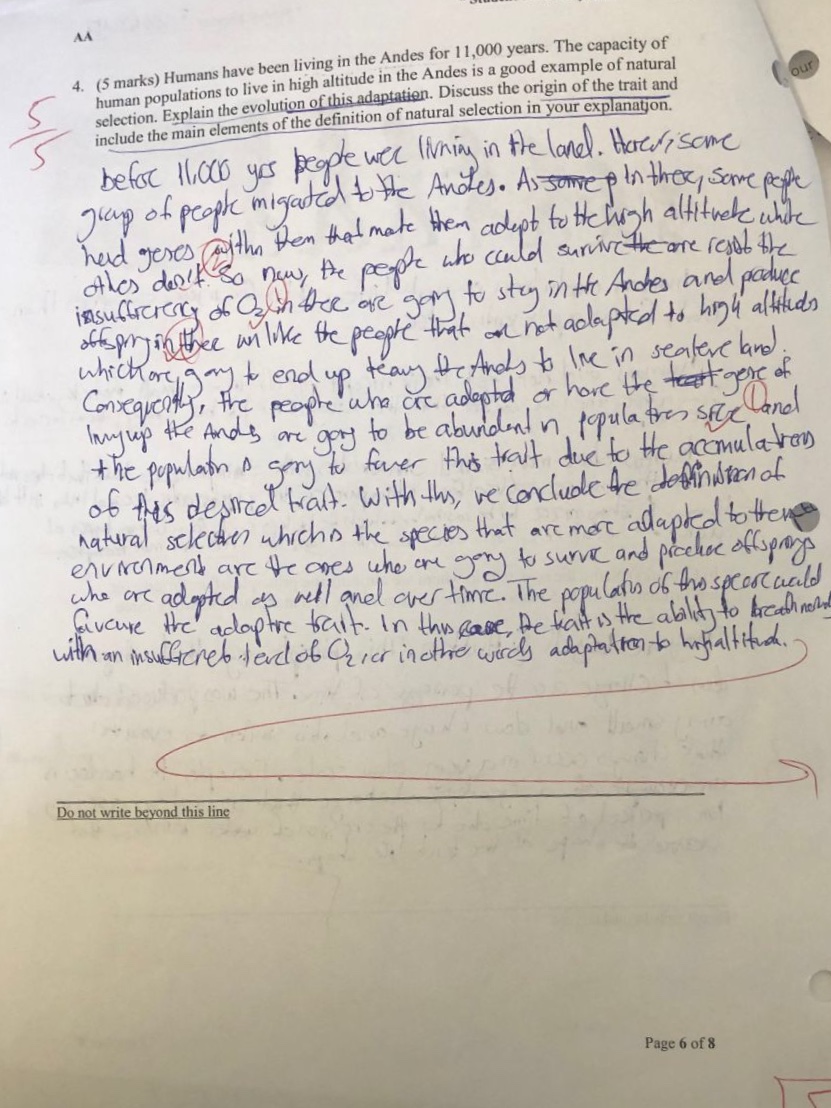 AA
our
4. (5 marks) Humans have been living in the Andes for 11,000 years. The capacity of
human populations to live in high altitude in the Andes is a good example of natural
selection. Explain the evolution of this adaptation. Discuss the origin of the trait and
include the main elements of the definition of natural selection in your explanation.
5/5
before 11,000 yrs people wer living in the land. However, some
group of people migrated to the Andes. As some p In there, some people
had genes within them that make them adept to the high altitude while
othes don't. So now, the people who could survive the are resist the
insufficiency of O2 in there are gong to stay in the Andes and produce
offspring in there unlike the people that are not adapted to high altitudes
which are gong to end up leavy the Ands to live in sealevel land.
Consequently, the people who are adapted or have the trait gene of
livng up the Ands are gong to be abundent in population size and
the population is gong to faver this trait due to the accmulations
of this desired trait. With this, we conclude the definition of
natural selection which is the species that are more adapted to there
environment are the ones who are gong to survive and produce offsprings
who are adapted as well and over time. The population of this specie would
favoure the adaptive trait. In this case, the trait is the ability to breath
with an insufficent level of O2, or in other words adaptation to high altitud.
Do not write beyond this line
Page 6 of 8